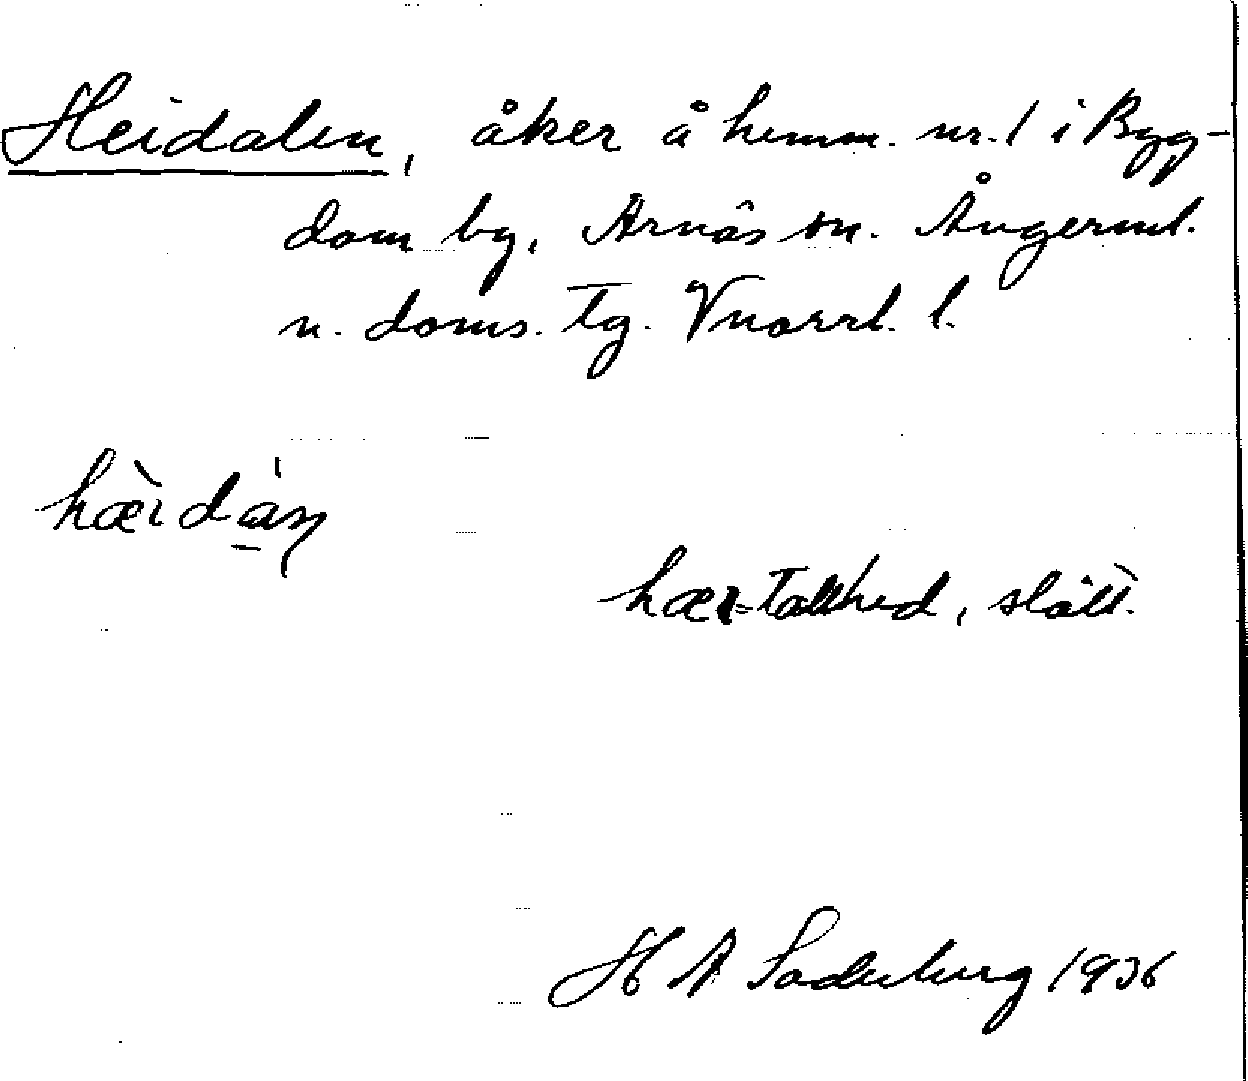 Heidalen, åker å hemm. nr. 1 i Byg-
dom by, Arnäs sn. Ångerml.
n. doms. tg. Vnorrl. l.
hæ̀ɪdàn
hæɪ = tallhed, slätt.
H A Söderberg 1936